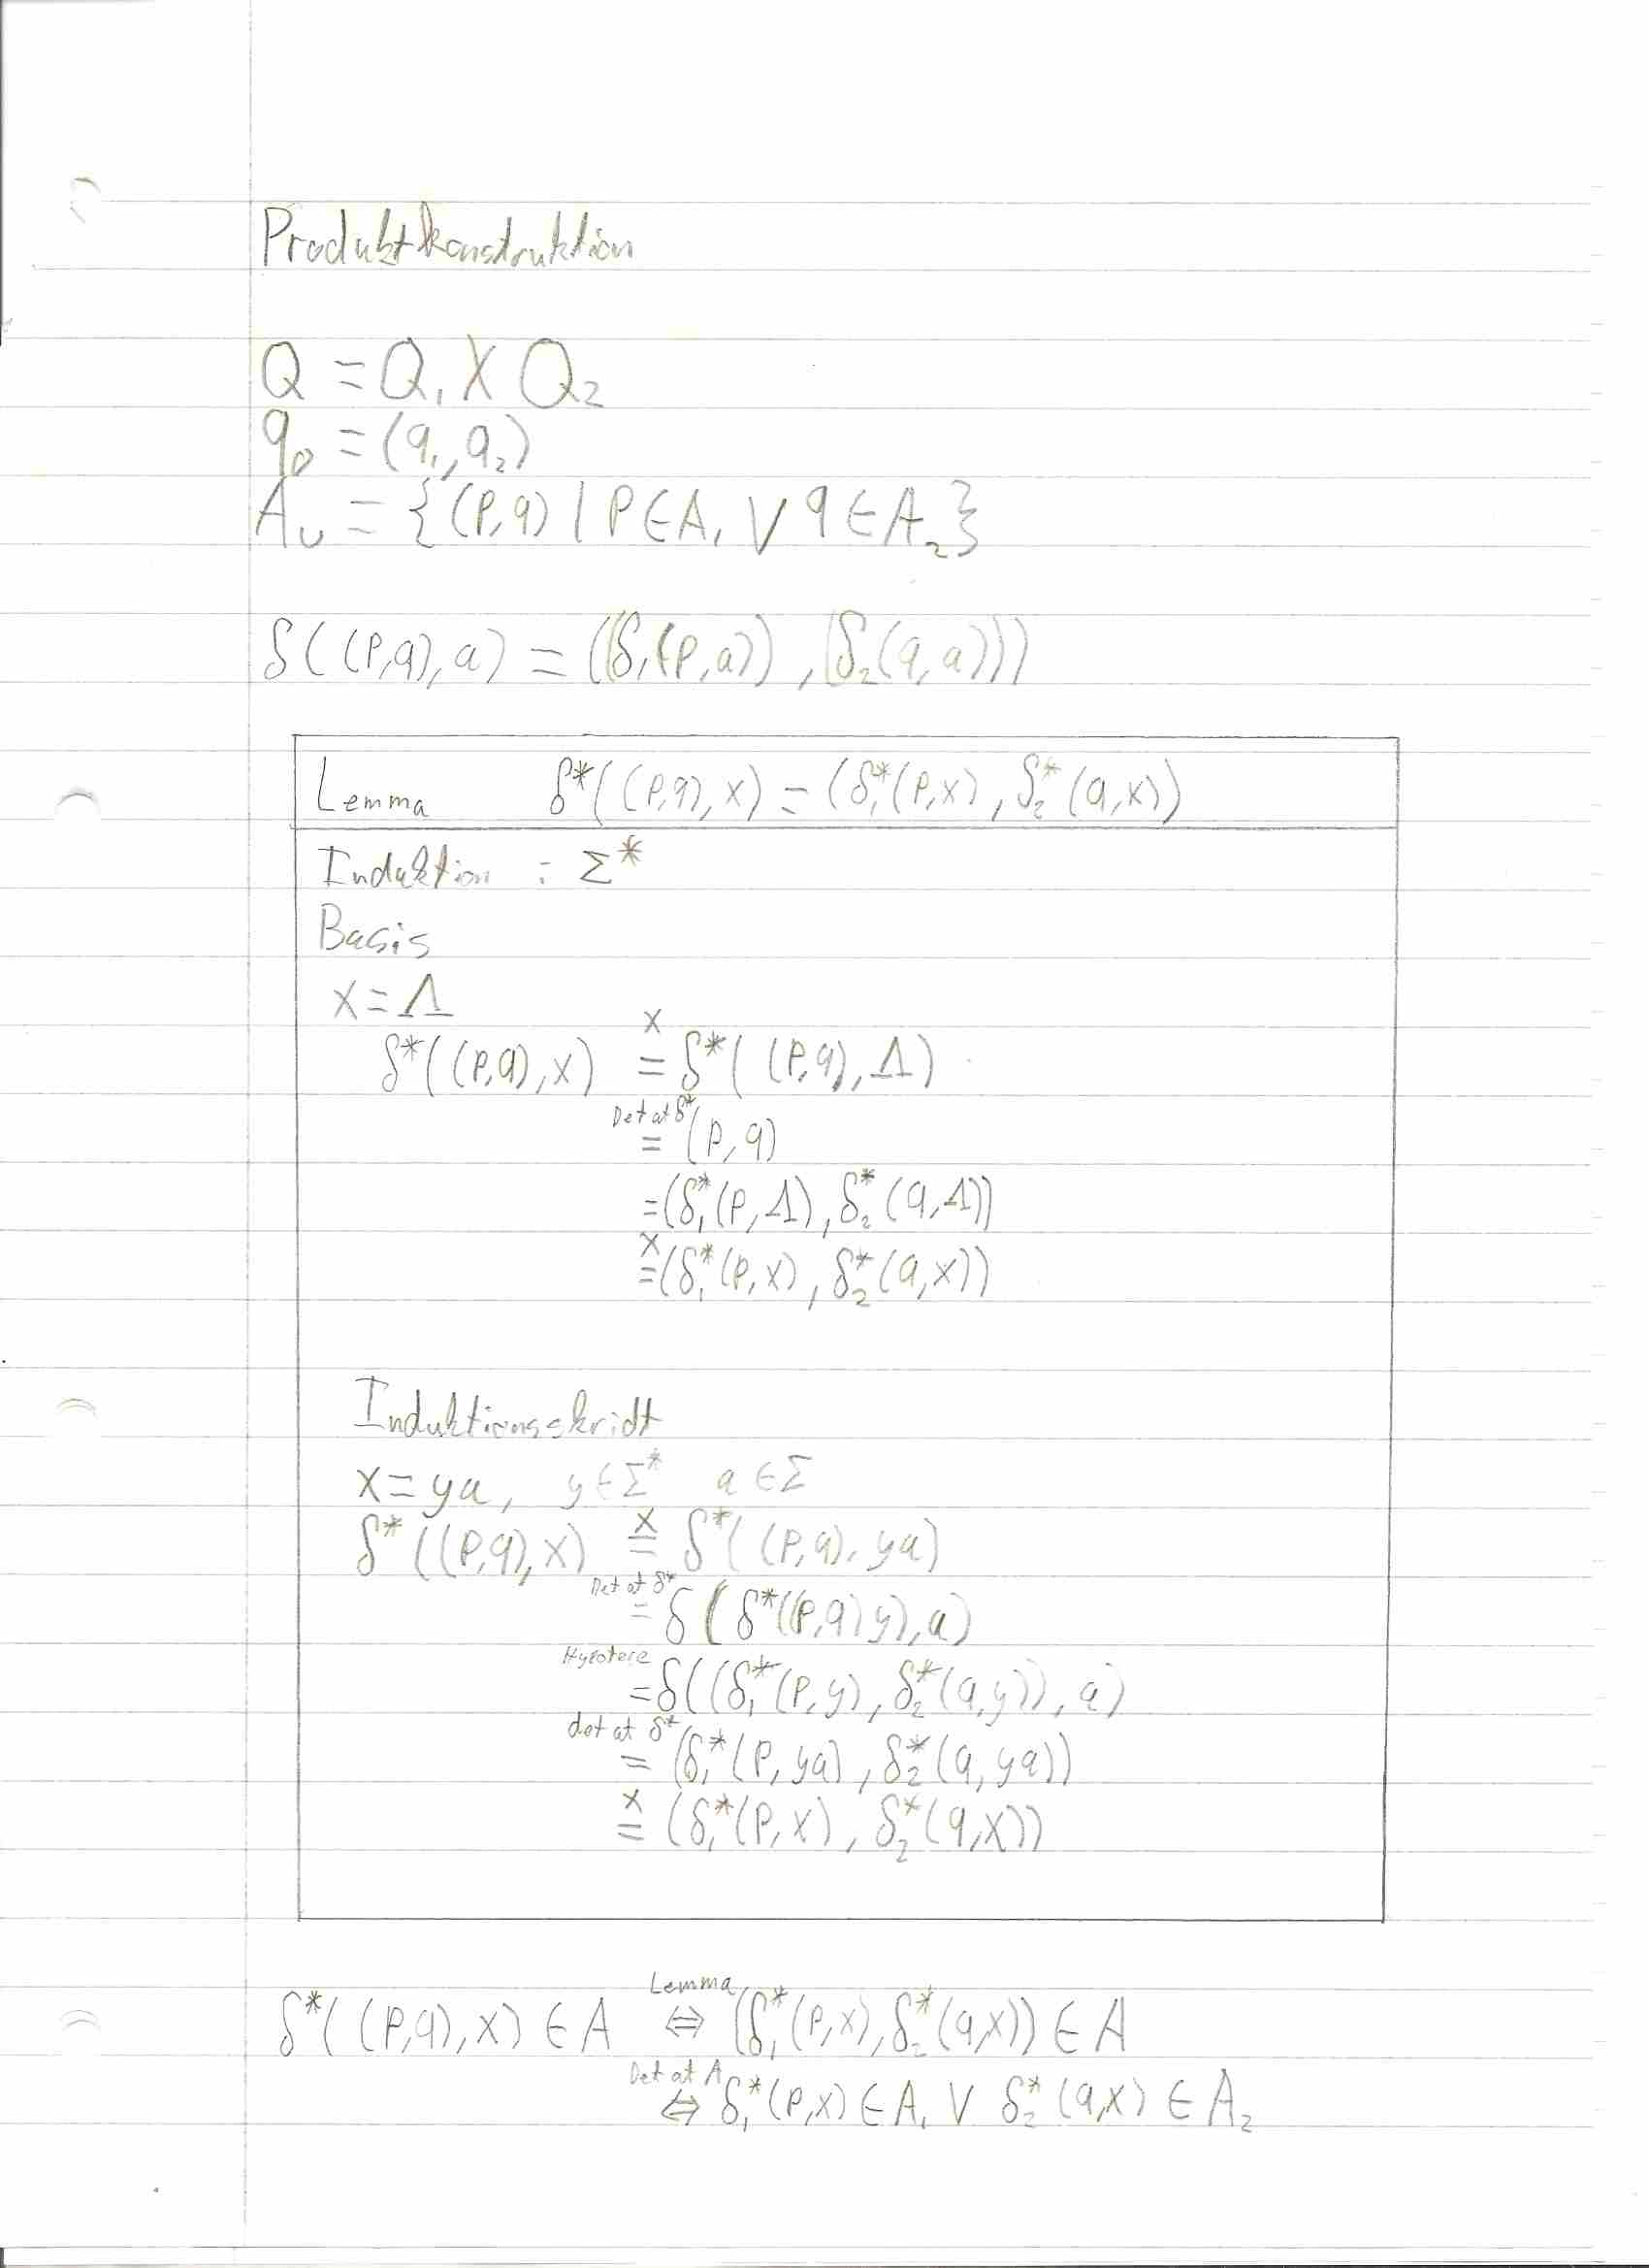 Produktkonstruktion
Q = Q₁ X Q₂
q₀ = (q₁, q₂)
A∪ = {(P,q) | P ∈ A₁ ∨ q ∈ A₂}
δ((P,q),a) = ((δ₁(P,a)), (δ₂(q,a)))
Lemma δ*((P,q),x) = (δ₁*(P,x), δ₂*(q,x))
Induktion : Σ*
Basis
x = Λ
x
δ*((P,q),x) = δ*((P,q),Λ)
Det at δ*
= (P,q)
= (δ₁*(P,Λ), δ₂*(q,Λ))
x
= (δ₁*(P,x), δ₂*(q,x))
Induktionsskridt
x = ya, y ∈ Σ* a ∈ Σ
x
δ*((P,q),x) = δ*((P,q), ya)
Det at δ*
= δ(δ*((P,q)y),a)
= δ((δ₁*(P,y), δ₂*(q,y)),a)
det at δ*
= (δ₁*(P,ya), δ₂*(q,ya))
x
= (δ₁*(P,x), δ₂*(q,x))
Lemma
δ*((P,q),x) ∈ A ⇔ (δ₁*(P,x), δ₂*(q,x)) ∈ A
Det at A
⇔ δ₁*(P,x) ∈ A₁ ∨ δ₂*(q,x) ∈ A₂